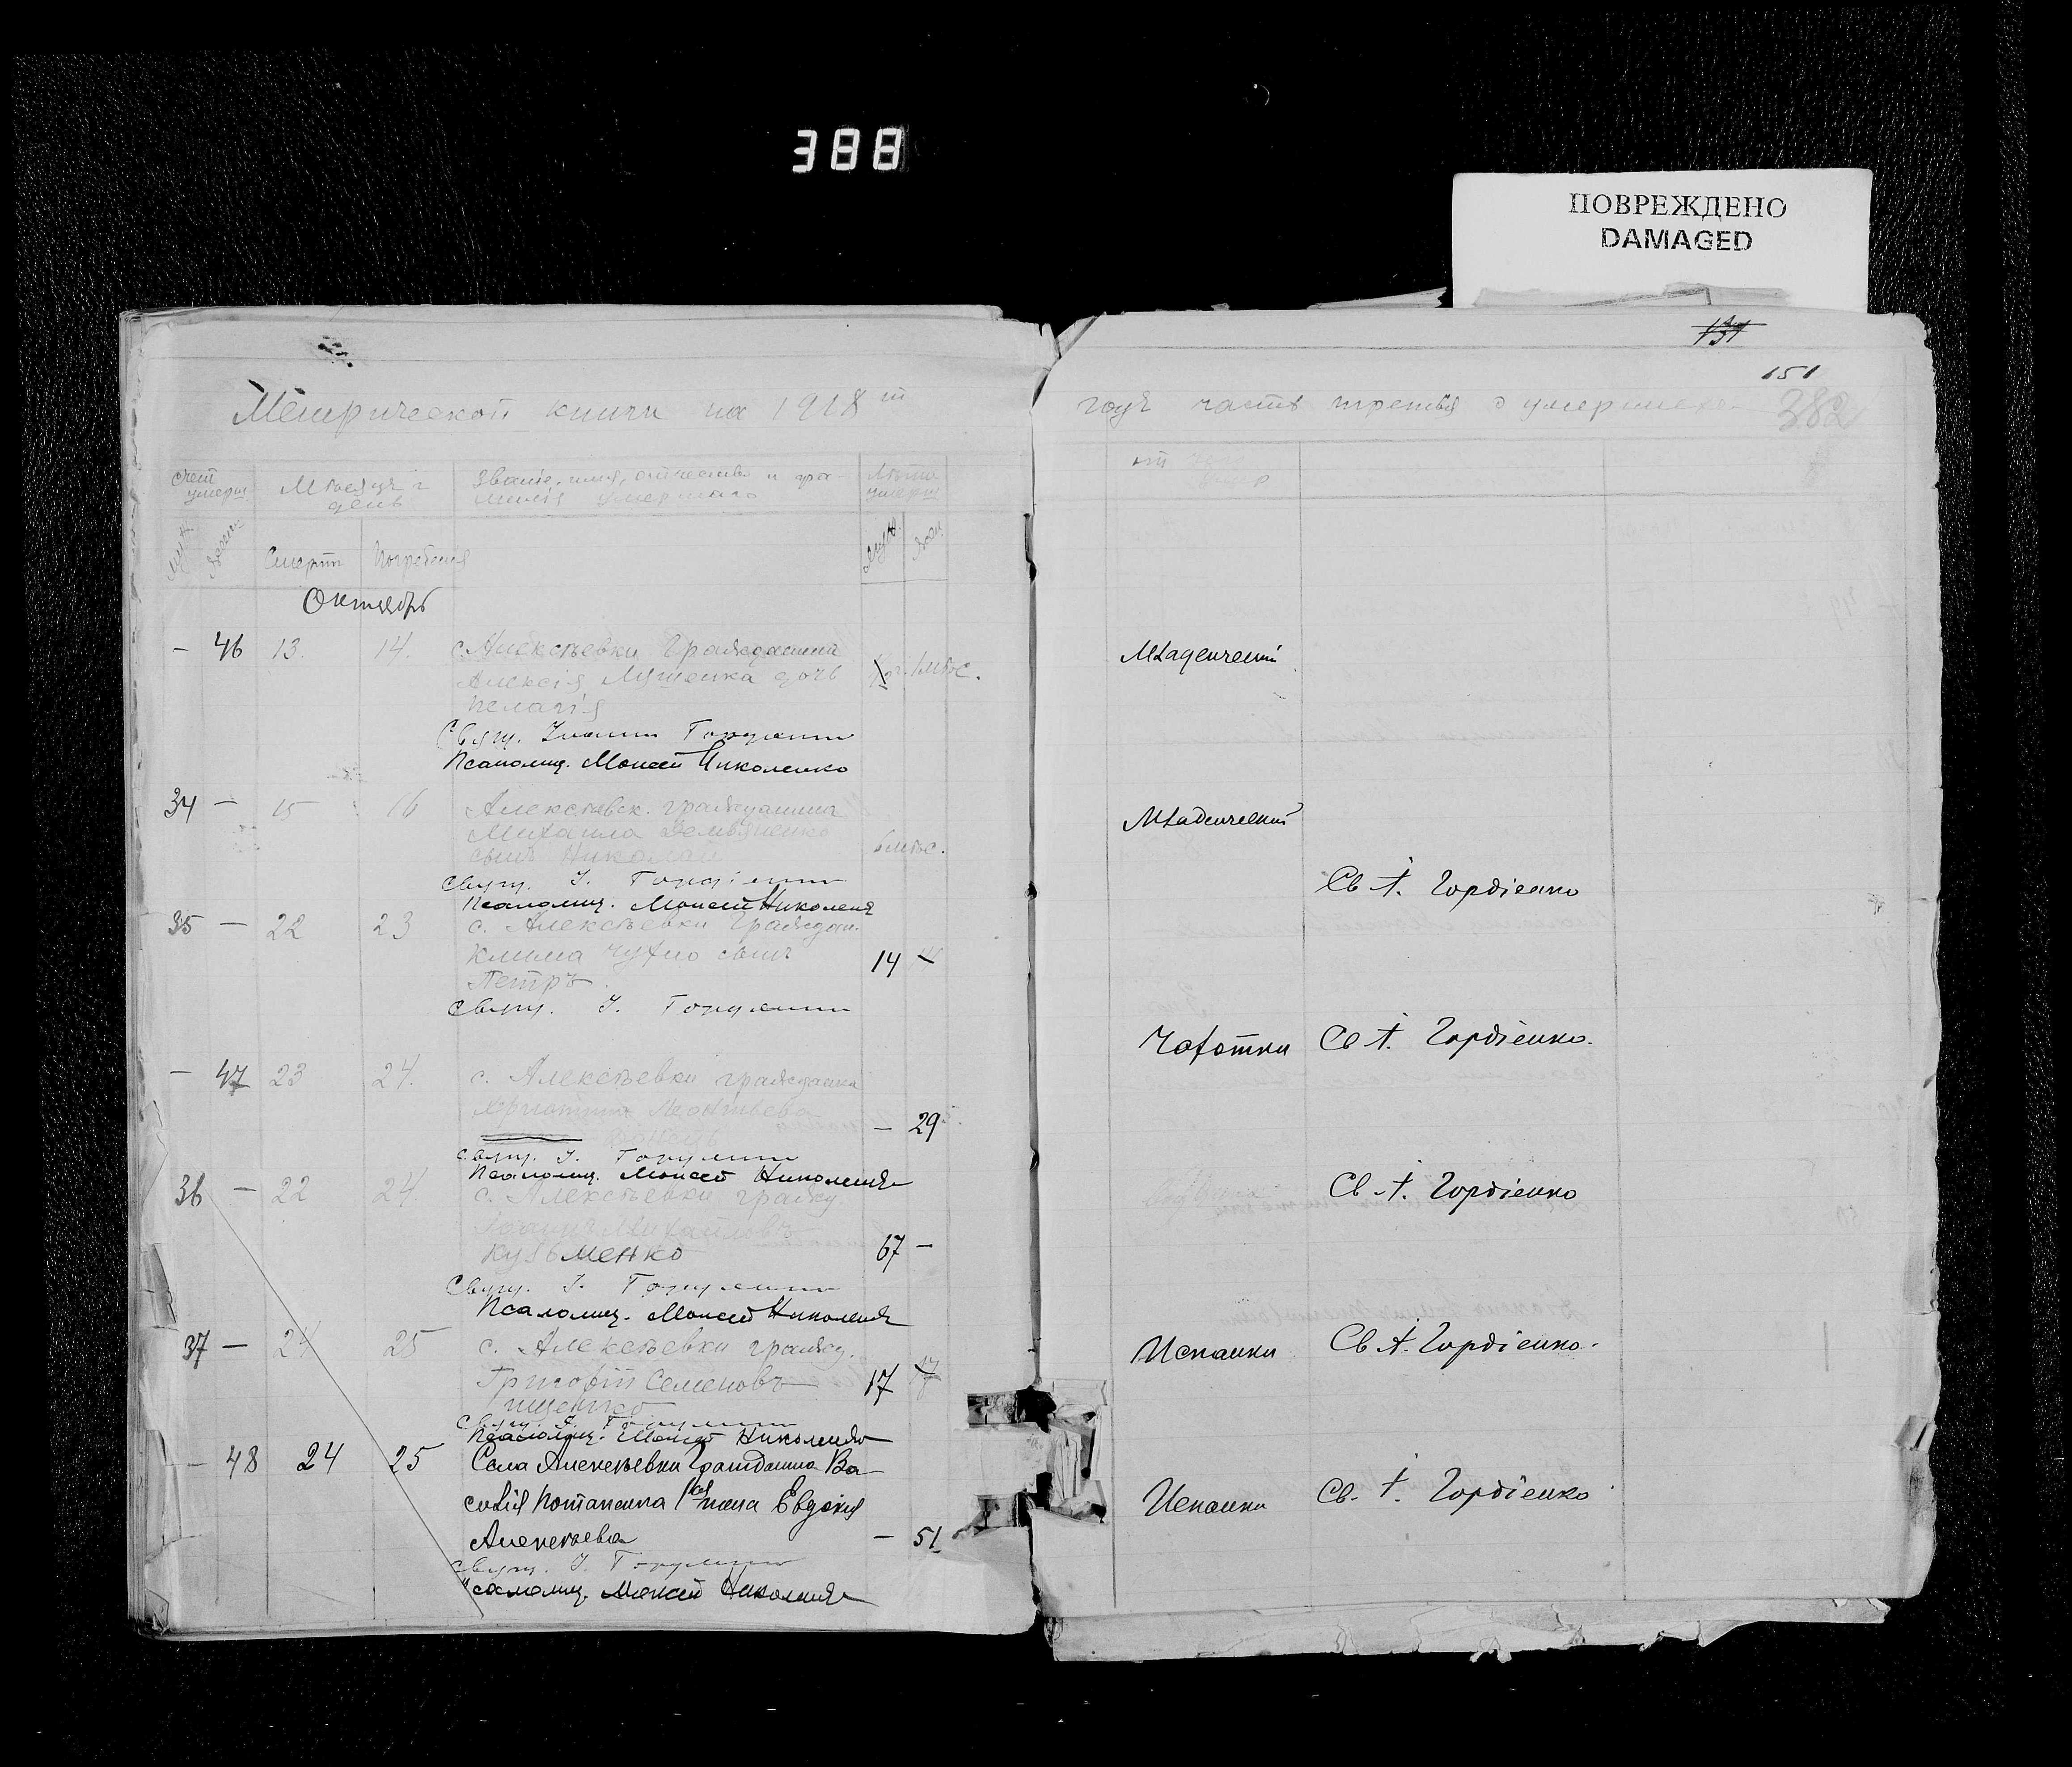 388
ПОВРЕЖДЕНО
DAMAGED
151
382
Метрической книги на 1918 ш
года часть третья о умерших
Счет умерш
Мѣсяцъ и день
Званіе, имя, отчество и фамилія умершаго
Лѣта умерш
Смерти
Погребенія
Октябрь
— 46 13. 14. с. Алексѣевки Гражданина
Алексія Лущенка дочь 1 мѣс.
Пелагія
Младенческій
Свящ. Іоаннъ Гордіенко
Псаломщ. Моисей Николенко
34 — 15 16 Алексѣевск. гражданина
Михаила Демьяненко
сынъ Николай мѣс.
Младенческій
Свящ. І. Гордіенко
Св. І. Гордіенко
Псаломщ. Моисей Николенко
35 — 22 23 с. Алексѣевки граждан.
Клима Чухно сынъ 14 —
Петръ.
Свящ. І. Гордіенко
Чахотки Св І. Гордіенко.
— 47 23 24. с. Алексѣевки гражданка
Леонтьева — 29
Свящ. І. Гордіенко
Псаломщ. Моисей Николенко
Св І. Гордіенко
36 — 22 24. с. Алексѣевки гражд
Михайловъ
Кузьменко 67 —
Свящ. І. Гордіенко
Псаломщ. Моисей Николенко
37 — 24 25 с. Алексѣевки гражд.
Григорій Семеновъ 17
Гищенко
Испанки Св І. Гордіенко.
Свящ. І. Гордіенко
Псаломщ. Моисей Николенко
— 48 24 25 Села Алексѣевки Гражданина Ва
силія Потапенка жена Евдокія
Алексѣева — 51
Испанки Св. І. Гордіенко
Свящ. І. Гордіенко
Псаломщ. Моисей Николенко